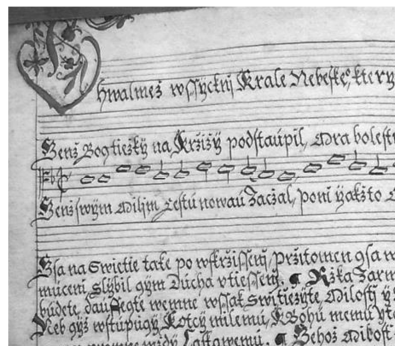 Chwalmež wssyckni Krale Nebeskeº, ktery
Genž Bog tiežky na Kržižy podstaupil, Mra bolest
Genž swým Milým Cestu nowau Začal, poni yakžto
Gsa na Swietie take po wskržissení pržitomen gsa w
mucení, Slybil gym Ducha vtiessení. Ržka Zarm
budete, dauffegte wemne wssak Switiezyte, Milosti
Neb gyž wstupugy Kotcy milemu, k Bohu memu
wemne wždy Laskawemu. Gehož Milost